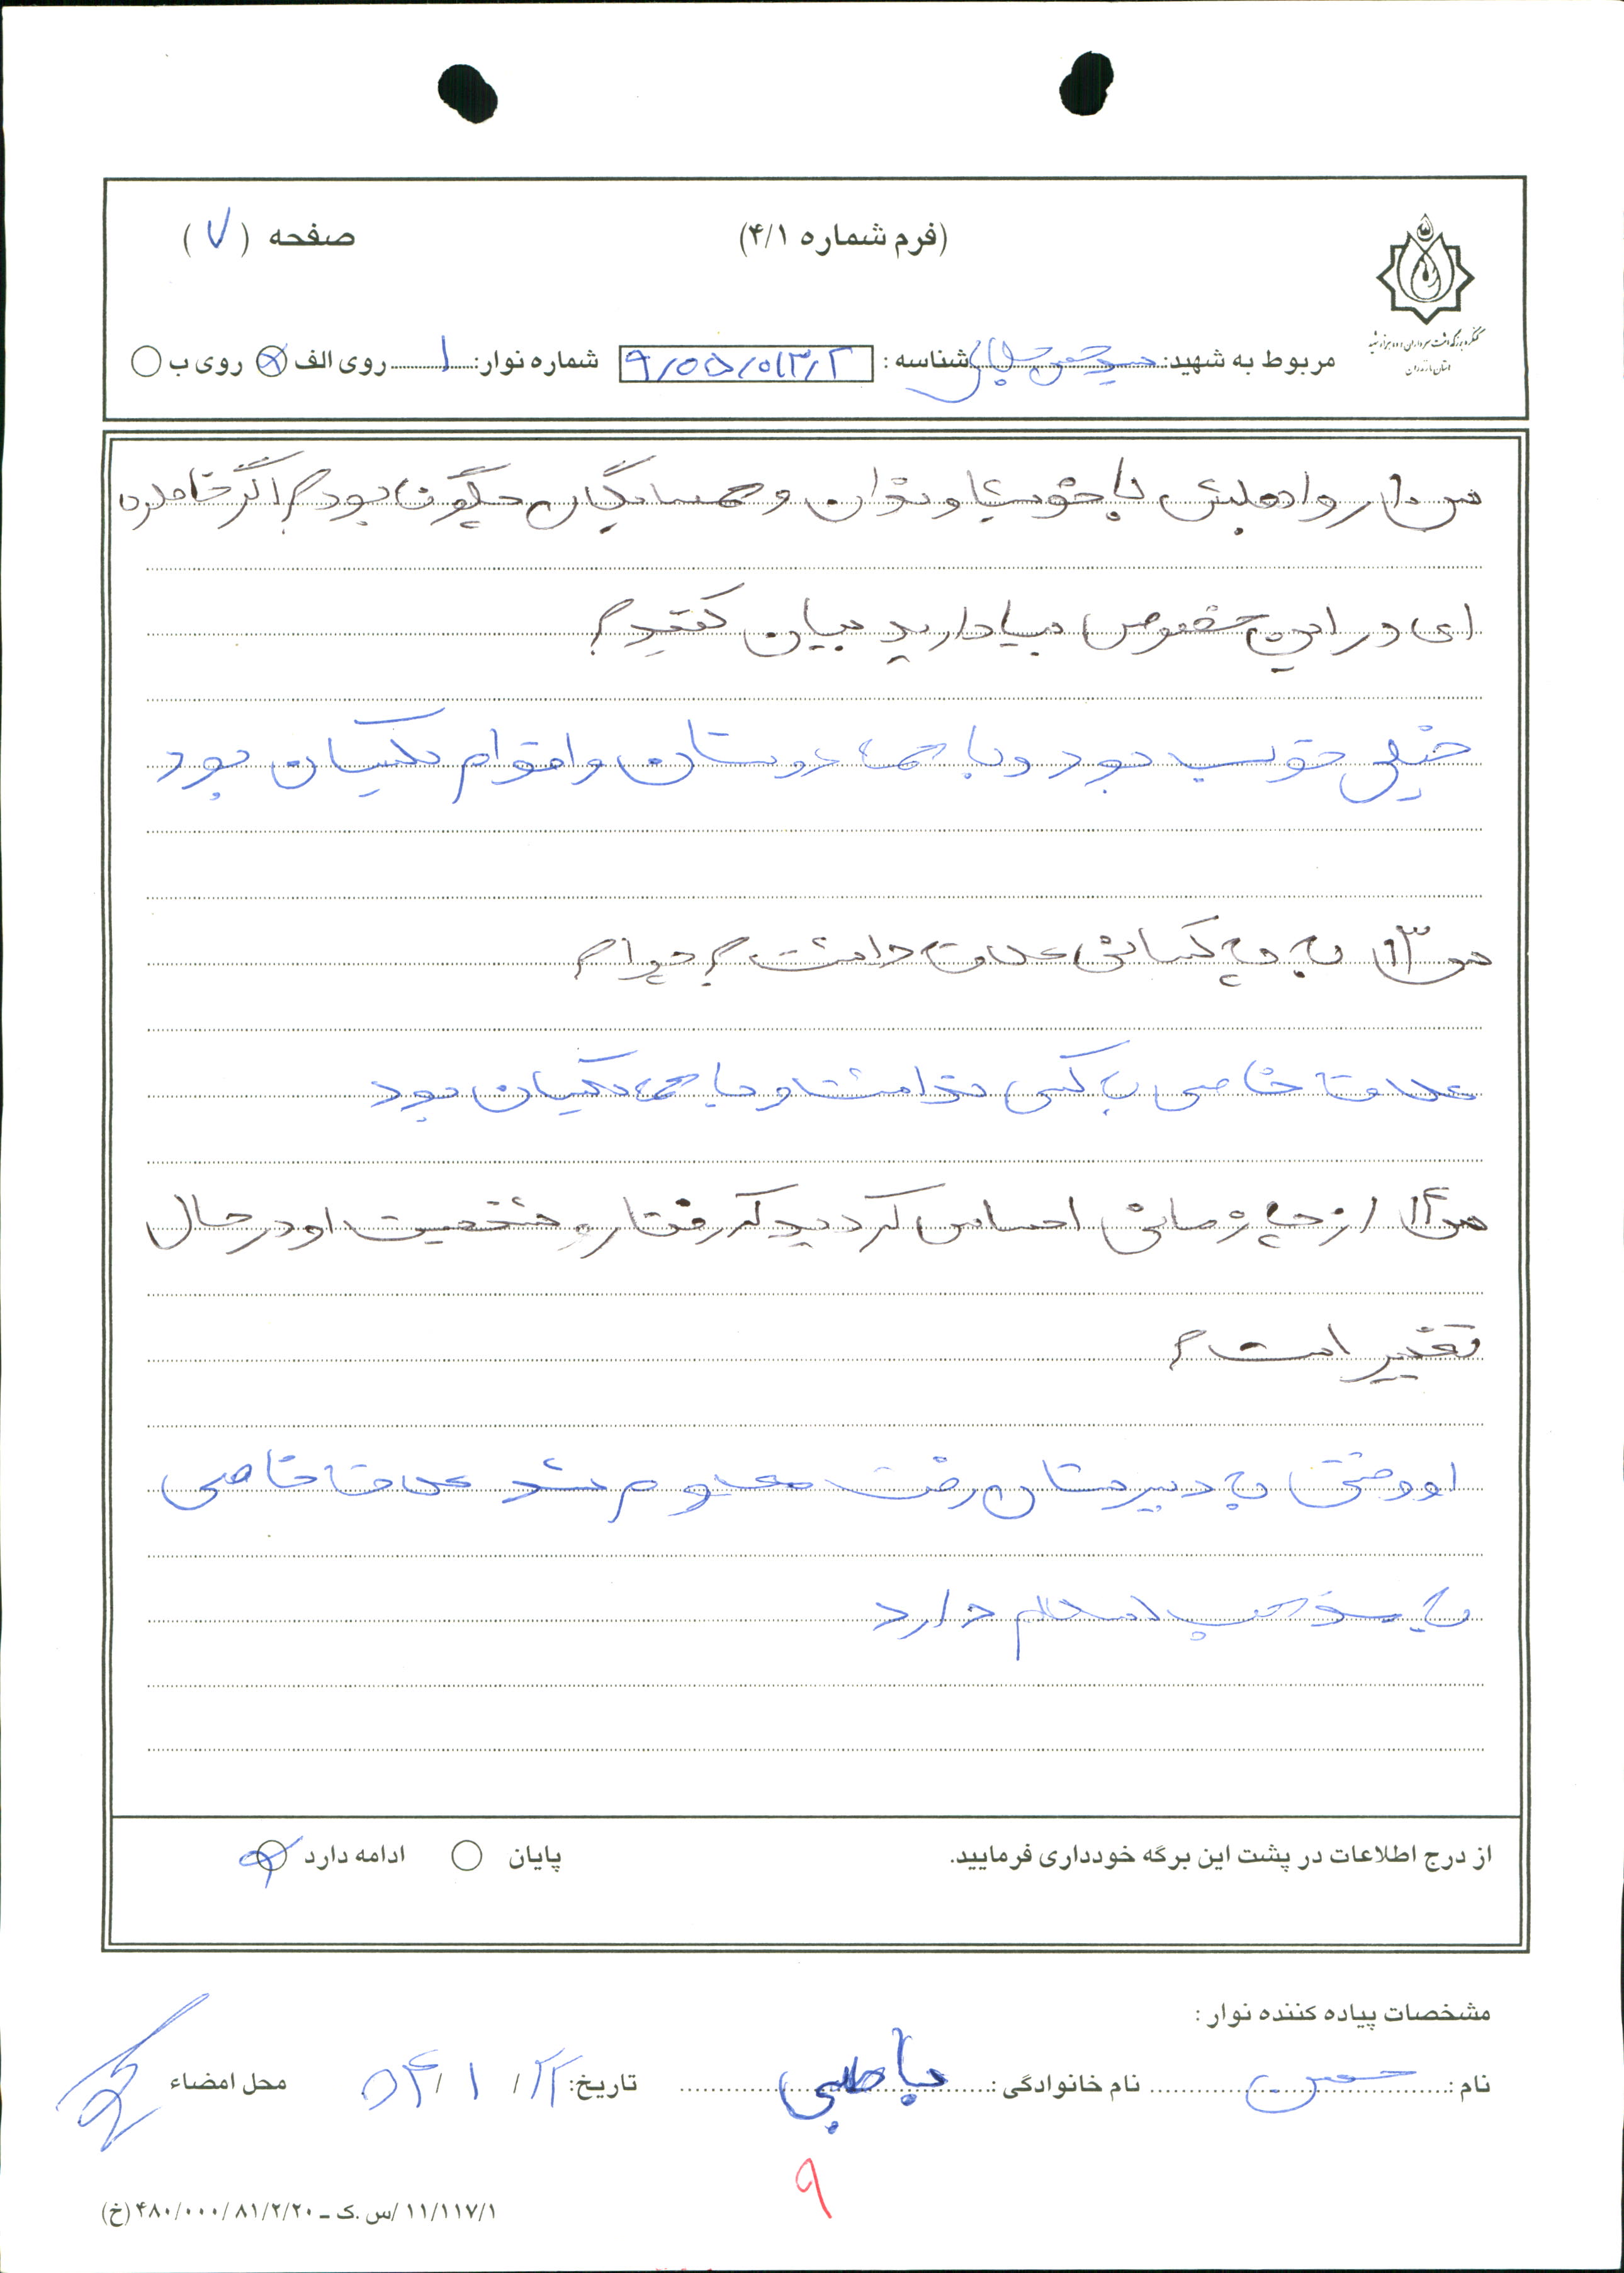 (فرم شماره ۴/۱)
صفحه (۷)
کنگره بزرگداشت سرداران و ده هزار شهید
استان مازندران
مربوط به شهید: سید حسن شناسه: شماره نوار: ۱ روی الف روی ب
س۱۰ روابطش با خویشاوندان و همسایگان چگونه بود؟ اگر خاطره
ای در این خصوص بیاد دارید بیان کنید؟
خیلی خوب بود و با همه دوستان و اقوام یکسان بود
س۱۱ به چه کسانی علاقه داشت؟ چرا؟
علاقه خاصی به کسی نداشت و با همه یکسان بود
س۱۲ از چه زمانی احساس کردید که رفتار و شخصیت او در حال
تغییر است؟
او وقتی به دبیرستان رفت معلوم شد علاقه خاصی
به مذهب اسلام دارد
از درج اطلاعات در پشت این برگه خودداری فرمایید.
پایان ادامه دارد
مشخصات پیاده کننده نوار:
نام: حسن نام خانوادگی: تاریخ: محل امضاء
۹
۱۱/۱۱۷/۱/س.ک ـ ۴۸۰/۰۰۰/۸۱/۲/۲۰(خ)